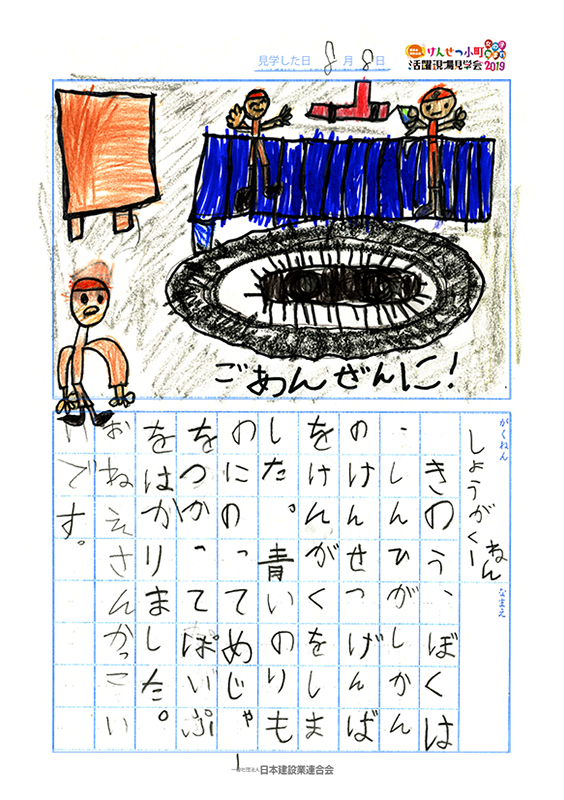 見学した日 8月8日
けんせつ小町
活躍現場見学会 2019
ごあんぜんに!
がくねん
しょうがく一ねん
なまえ
きのう、ぼくは
、しんひがしかん
のけんせつげんば
をけんがくをしま
した。青いのりも
のにのってめじゃ
をつかってぱいぷ
をはかりました。
おねえさんかっこい
いです。
一般社団法人 日本建設業連合会